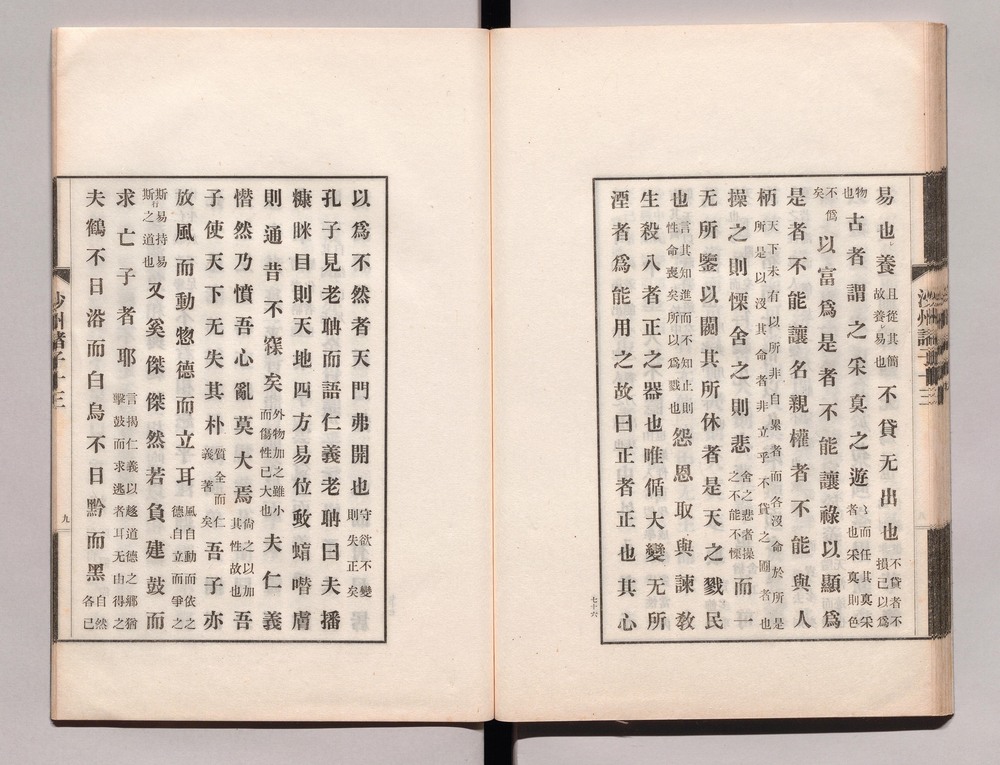 易也養且從其簡故養〻易也不貸无出也不貸者不損己以爲
物也古者謂之采真之遊〻而任其真采者也采真則色
不僞矣以富爲是者不能讓祿以顯爲
是者不能讓名親權者不能與人
柄天下未有以所非自累者而各沒命於所是所是以沒其命者非立乎不貸之圃者也
操之則慄舍之則悲舍之悲者操之不能不慄而一
无所鑒以闚其所休者是天之戮民
也言其知進而不知止則性命喪矣所以爲戮也怨恩取與諫敎
生殺八者正之器也唯循大變无所
湮者爲能用之故曰正者正也其心
七十六
以爲不然者天門弗開也守欲不變則失正矣
孔子見老聃而語仁義老聃曰夫播
糠眯目則天地四方易位蚊蝱噆膚
則通昔不寐矣外物加之雖小而傷性已大也夫仁義
憯然乃憤吾心亂莫大焉尙之以加其性故也吾
子使天下无失其朴質全而仁義著矣吾子亦
放風而動惣德而立耳風自動而依之德自立而爭之
斯易持易行斯之道也又奚傑傑然若負建鼓而
求亡子者耶言揭仁義以趍道德之鄕猶擊鼓而求逃者耳无由得之
夫鶴不日浴而白烏不日黔而黑自然各已
沙州諸子十三
九